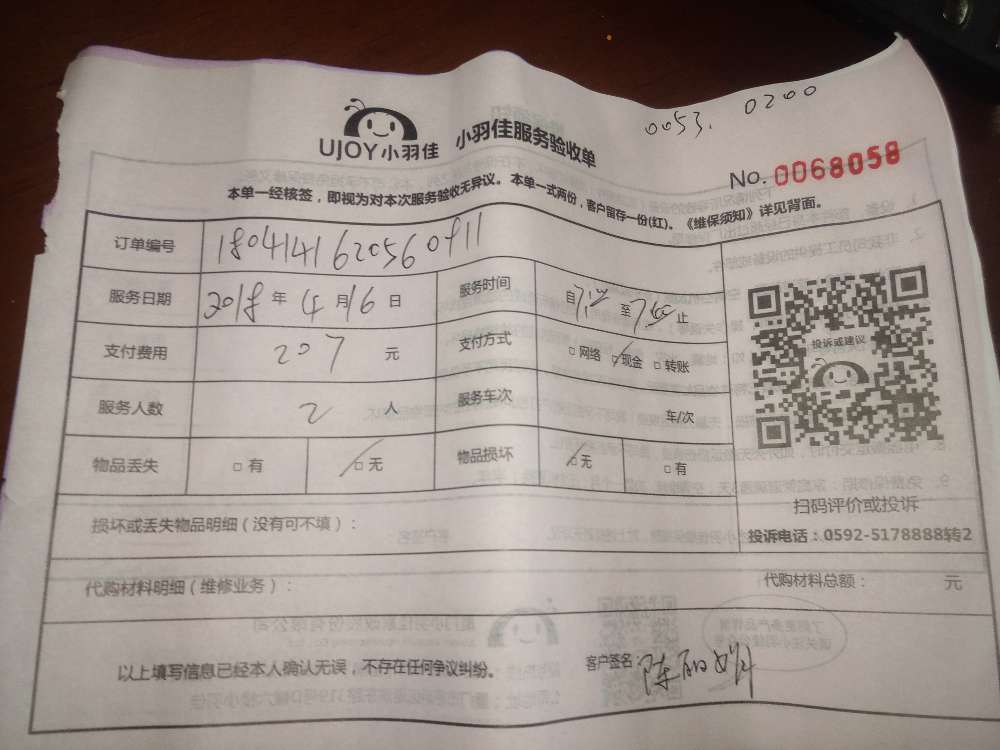 0053. 0200
UJOY小羽佳 小羽佳服务验收单
No. 0068058
本单一经核签，即视为对本次服务验收无异议。本单一式两份，客户留存一份(红)。《维保须知》详见背面。
订单编号
服务日期 2018 年 4 月 16 日 服务时间 自 至 止
支付费用 207 元 支付方式 □网络 □现金 □转账
服务人数 2 人 服务车次 车/次
物品丢失 □有 □无 物品损坏 □无 □有
投诉或建议
扫码评价或投诉
投诉电话：0592-5178888转2
损坏或丢失物品明细（没有可不填）：
代购材料明细（维修业务）： 代购材料总额： 元
以上填写信息已经本人确认无误，不存在任何争议纠纷。 客户签名